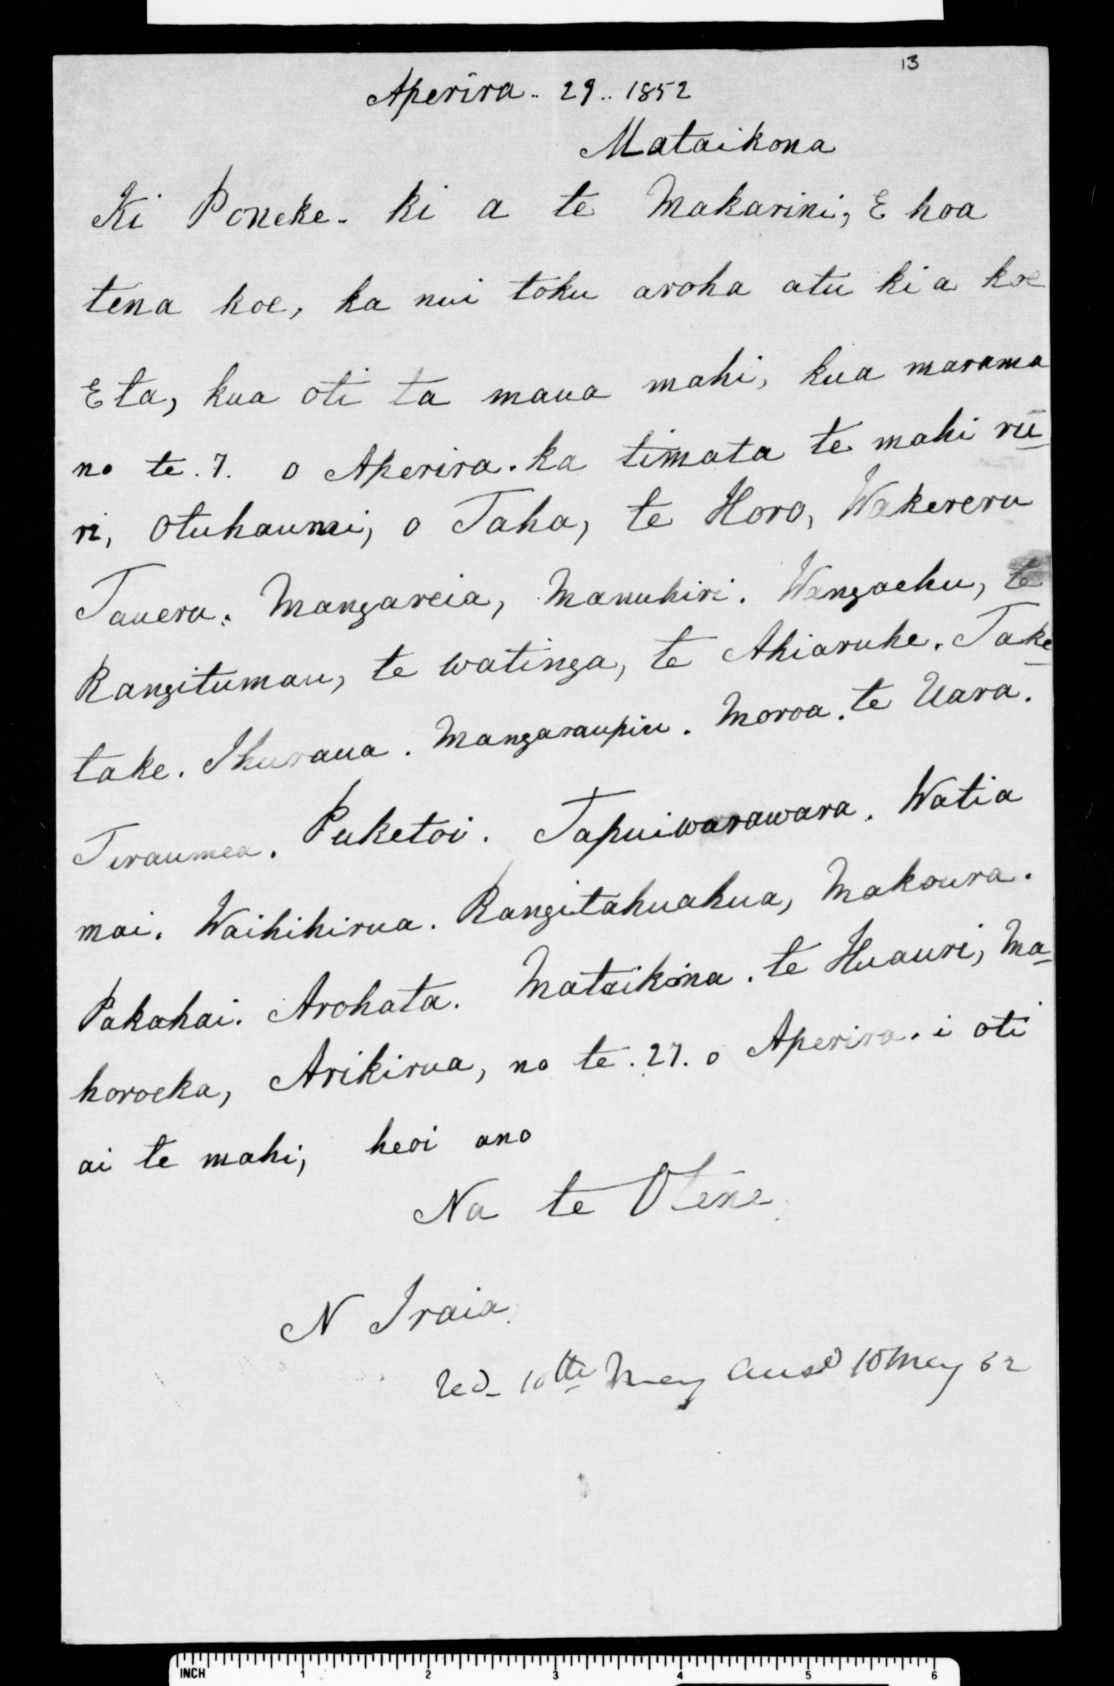 13
Aperira. 29.. 1852
Mataikona
Ki Poneke. ki a te Makarini, E hoa
tena koe, ka nui toku aroha atu ki a koe
E ta, kua oti ta maua mahi, kua marama
no te. 7. o Aperira. ka timata te mahi ru-
ri, Otuhaumi, o Taha, te Horo, Wakereru
Taueru. Mangareia, Manuhiri. Wangaehu, te
Rangitumau, te Watinga, te Ahiaruhe. Take-
take. Ihuraua. Mangaraupiu. Moroa. te Uara.
Tiraumea. Puketoi. Tapuiwarawara. Watia
mai. Waihihirua. Rangitahuahua, Makoura.
Pakahai. Arohata. Mataikona. te Huauri, Ma-
horoeka, Arikirua, no te. 27. o Aperira. i oti
ai te mahi, heoi ano
Na te Otene
N Iraia.
10th May Ansd 10 May 52
INCH 1 2 3 4 5 6